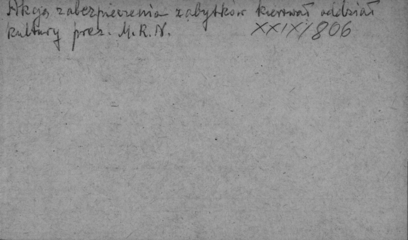 Akcją zabezpieczenia zabytków kierował oddział
kultury prez. M.R.N. XXIX/806